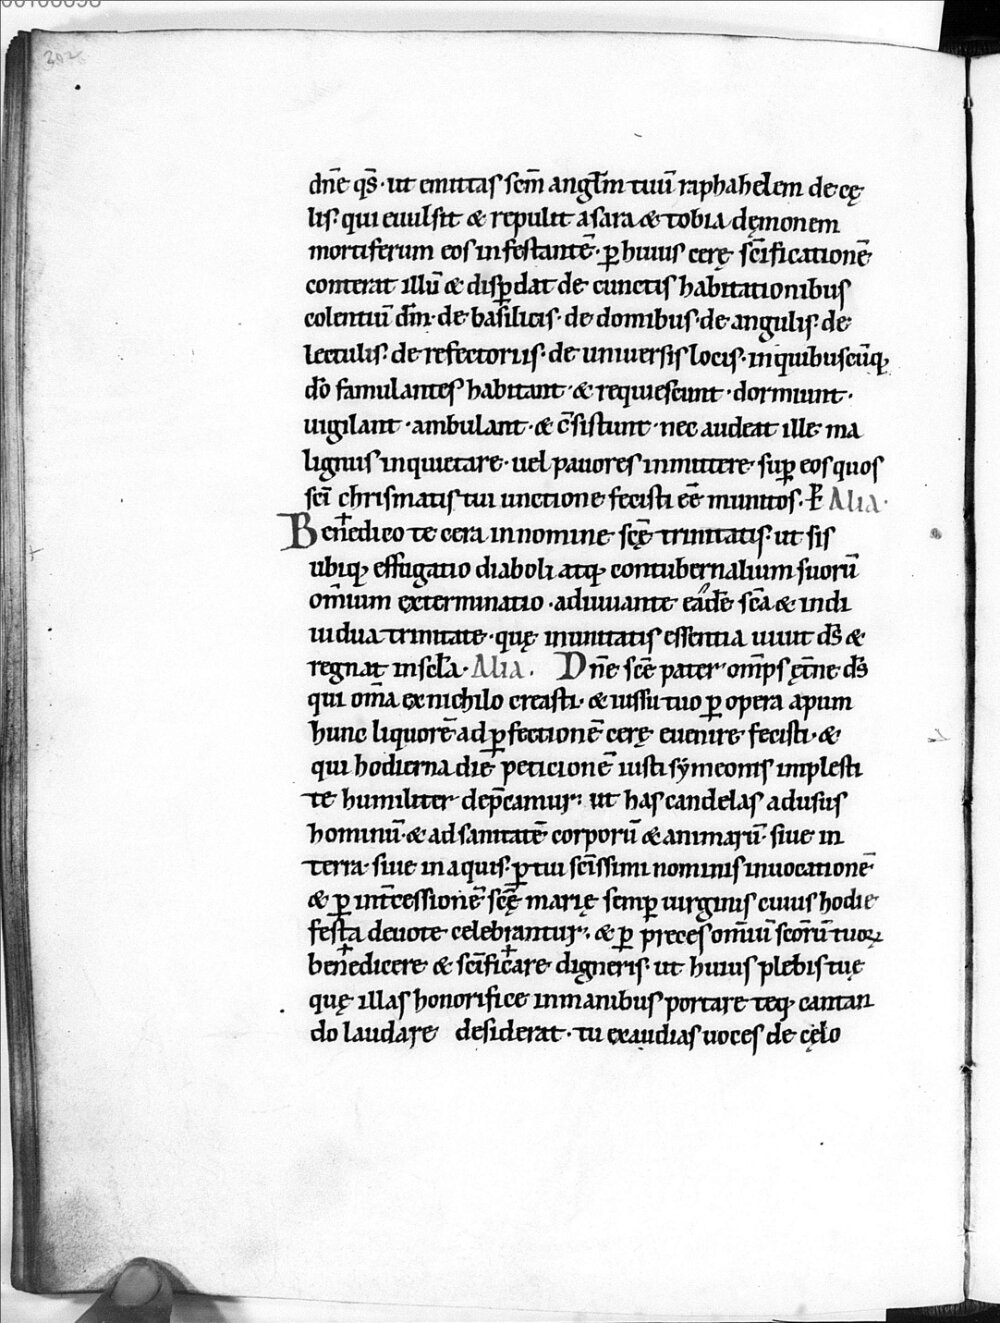 302
dn̄e qs̄· ut emittas scm̄ angl̄m tuū raphahelem de cę
lis· qui euulsit & repulit a sara & tobia dęmonem
mortiferum eos infestantē· ꝑ huius cerę sc̄ificationē
conterat illū & disꝑdat de cunctis habitationibus
colentiū dm̄· de basilicis· de domibus· de angulis· de
lectulis· de refectoriis· de uniuersis locis· in quibuscūq;
dō famulantes habitant· & requiescunt· dormiunt·
uigilant· ambulant· & c̄sistunt· nec audeat ille ma
lignus inquietare· uel pauores inmittere· suꝑ eos quos
sc̄i chrismatis tui unctione fecisti eē munitos· P̄ Alia·
Ben✝edico te cera in nomine scę̄ trinitatis· ut sis
ubiq; effugatio diaboli atq; contubernalium suorū
om̄ium exterminatio· adiuuante eādē sc̄a & indi
uidua trinitate· quę inunitatis essentia uiuit ds̄ &
regnat in sc̄la· Alia. Dn̄e scē pater om̄ps ęt̄ne ds̄
qui om̄a ex nichilo creasti· & iussu tuo ꝑ opera apum
hunc liquorē ad ꝑfectionē cerę euenire fecisti· &
qui hodierna die peticionē iusti sẏmeonis implesti
te humiliter dep̄camur; ut has candelas ad usus
hominū· & ad sanitatē corporū & animarū· siue in
terra siue in aquis· ꝑ tui sc̄issimi nominis inuocationē
& ꝑ int̄cessionē scę̄ marię semꝑ uirginis cuius hodie
festa deuote celebrantur; & ꝑ preces om̄iū scōrū tuoꝝ
ben✝edicere & sc̄ific✝are digneris· ut huius plebis tuę
quę illas honorifice in manibus portare teq; cantan
do laudare desiderat· tu exaudias uoces de cęlo